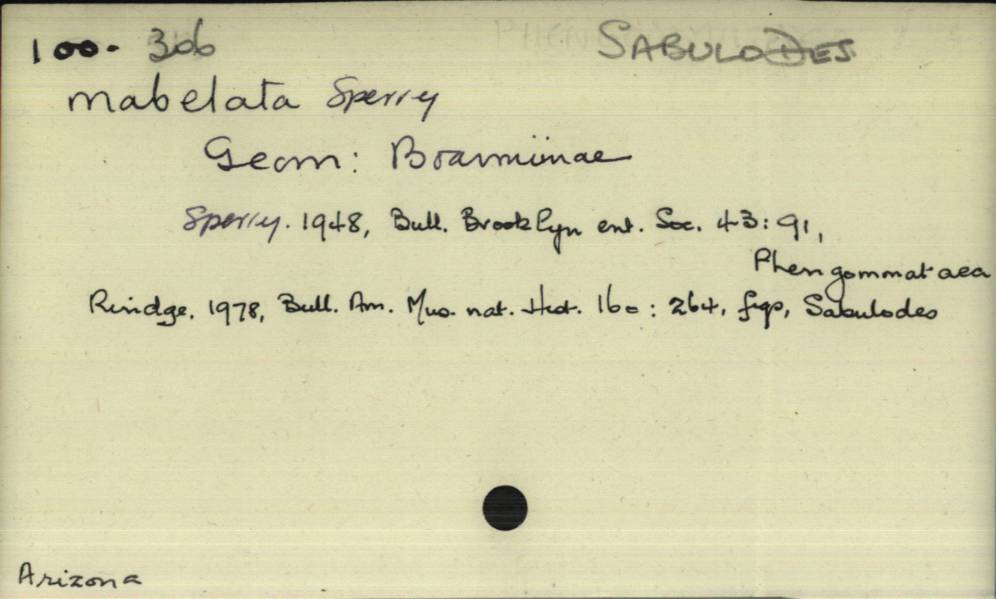 100. 306 SABULODES
mabelata Sperry
Geom: Boarmiinae
Sperry. 1948, Bull. Brooklyn ent. Soc. 43: 91,
Phengommataea
Rindge, 1978, Bull. Am. Mus. nat. Hist. 160: 264, figs, Sabulodes
Arizona